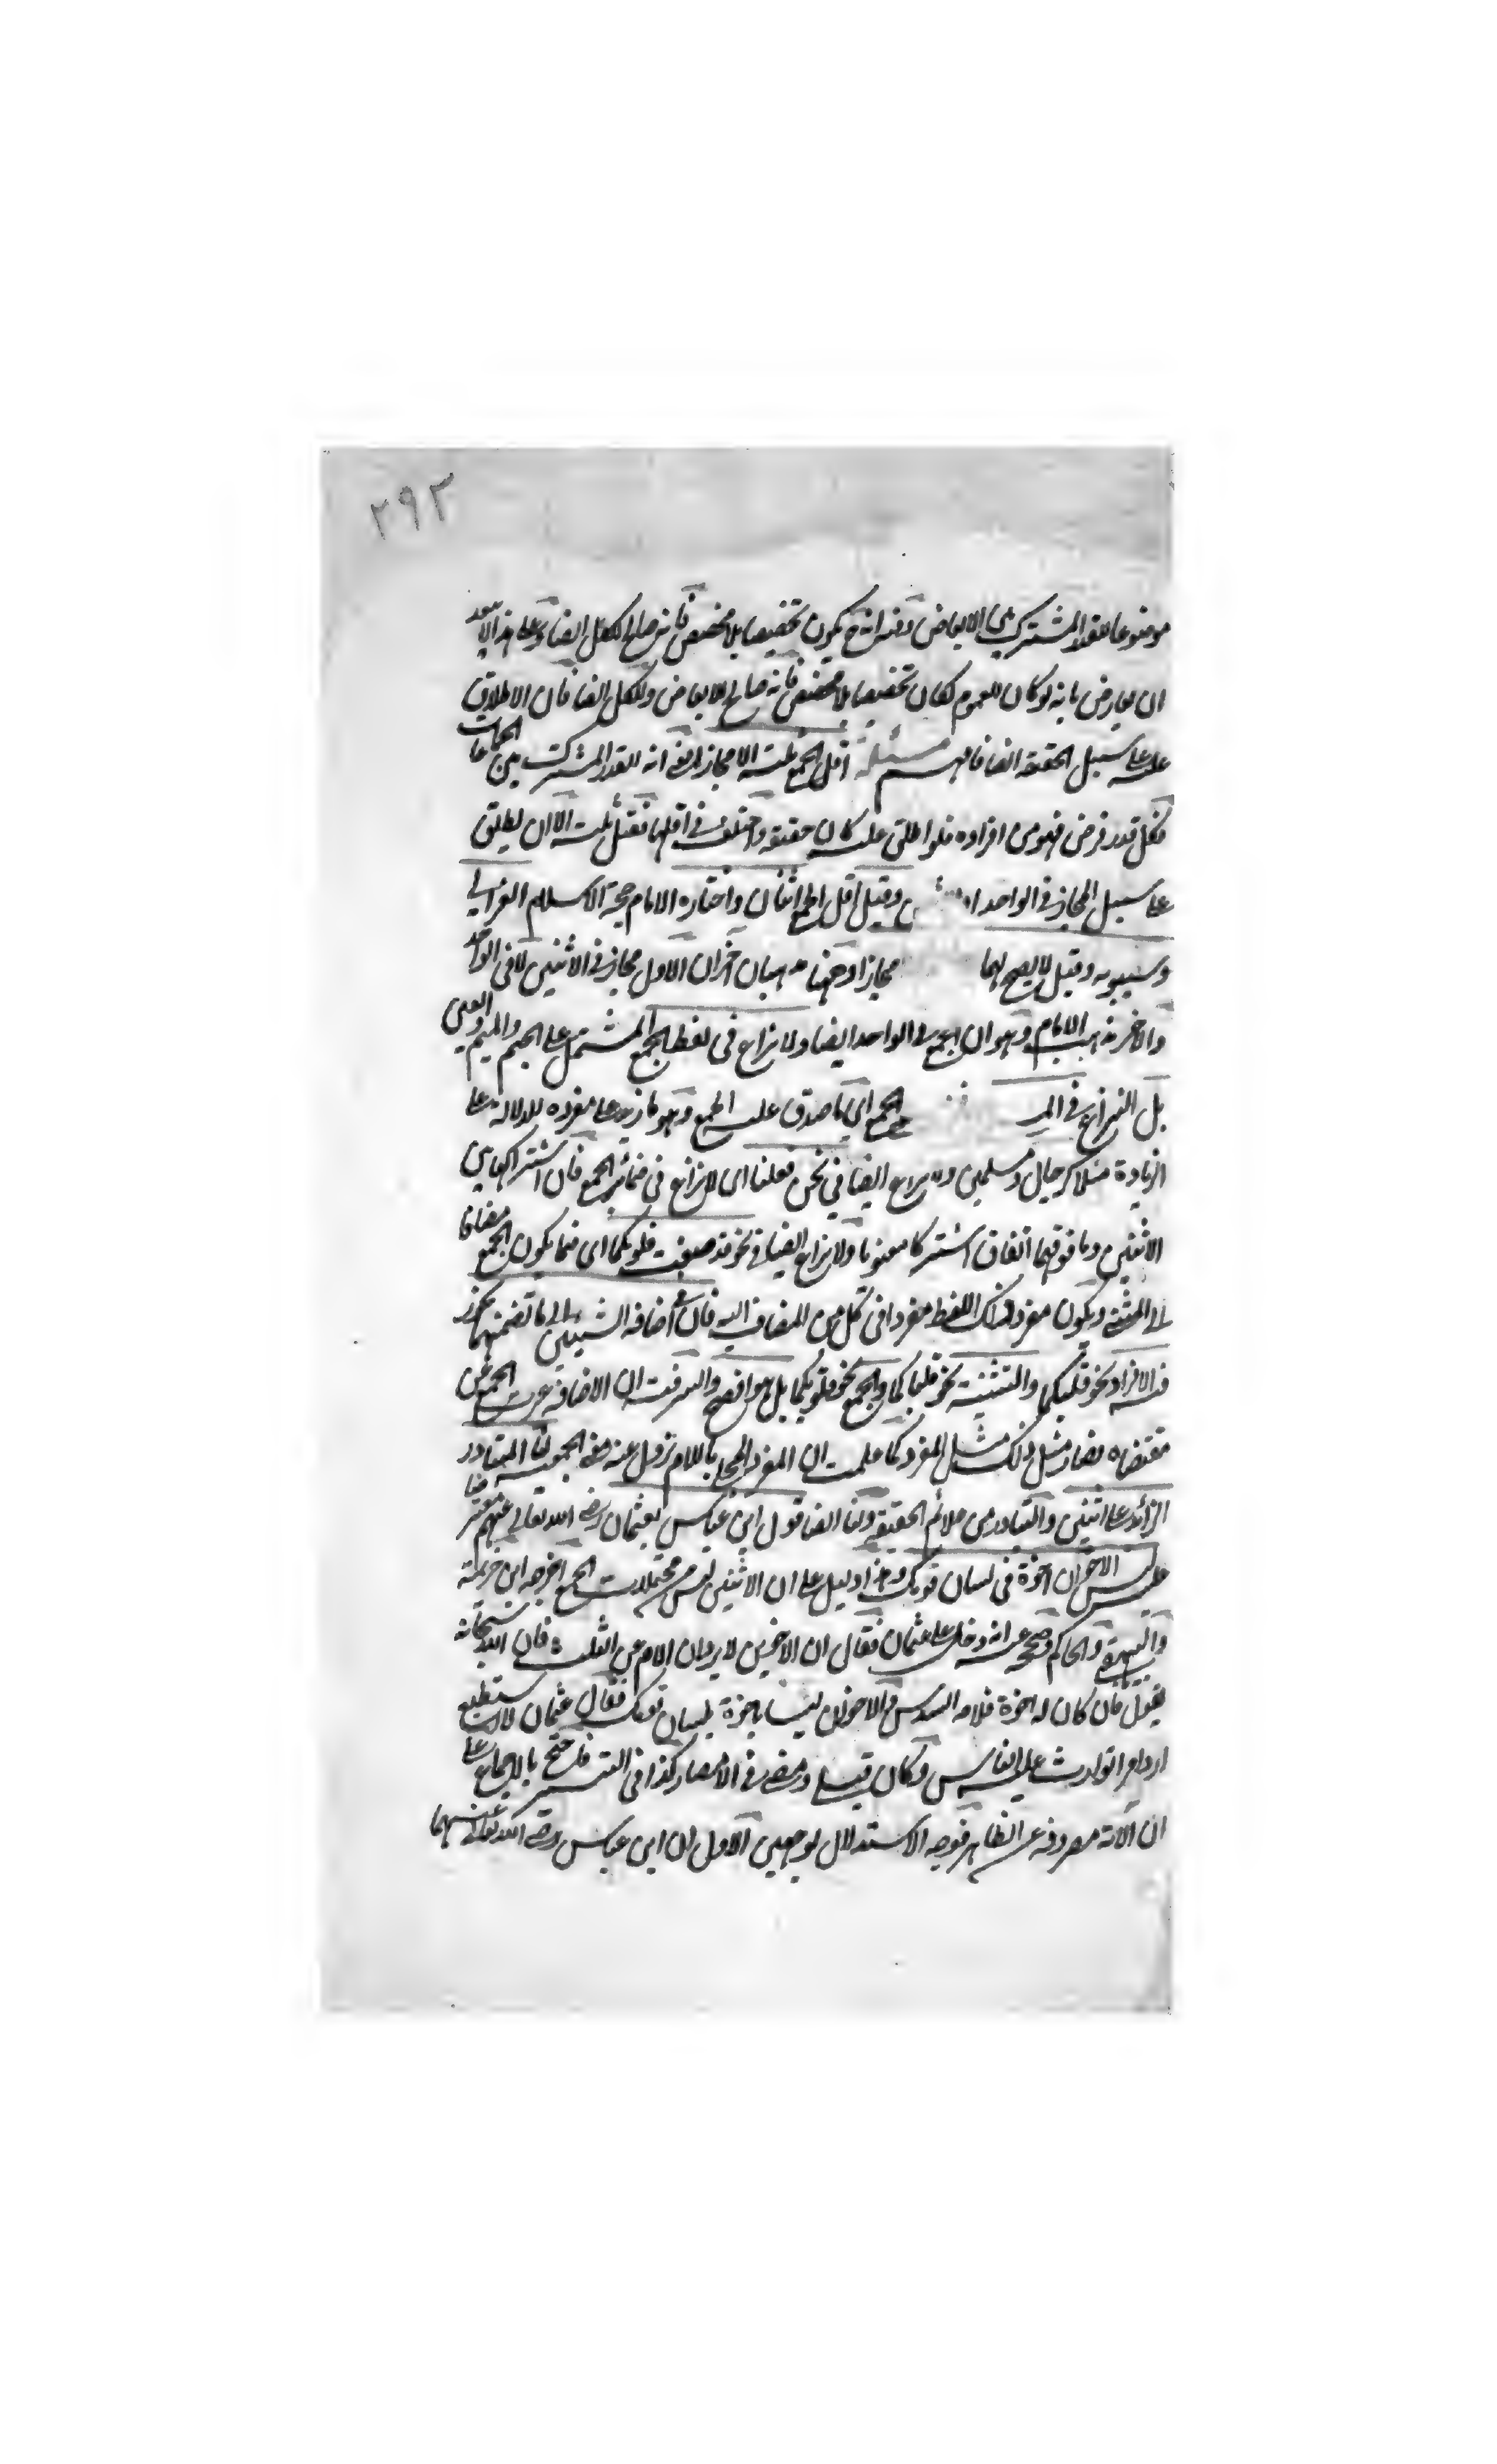 ٢٩٢
موضوعا للقدر المشترك بين الابعاض وفيه انه ح يكون تخصيصا بلا مخصص فانه صالح للكل ايضا وعلى هذا لا يبعد
ان يعارض بانه لو كان للعموم لكان تخصيصا بلا مخصص فانه صالح للابعاض وللكل ايضا فان الاطلاق
عليه على سبيل الحقيقة ايضا فافهم مسئلة اقل الجمع ثلثة الا مجازا يعني انه للقدر المشترك بين الجماعات
فكل قدر فرض فهو من افراده فلو اطلق عليه كان حقيقة واختلف في اقلها فقيل ثلثة الا ان يطلق
على سبيل المجاز في الواحد وقيل اقل الجمع اثنان واختاره الامام حجة الاسلام الغزالي
وسيبويه وقيل لا يصح لهما مجازا وههنا مذهبان اخران الاول مجاز في الاثنين لا في الواحد
والاخر مذهب الامام وهو ان الجمع في الواحد ايضا ولا نزاع في لفظ الجمع المشتمل على الجيم والميم والعين
بل النزاع في الجمع اي ما صدق عليه الجمع وهو ما زيد على مفرده للدلالة على
الزيادة مثلا كرجال ومسلمين ولا نزاع ايضا في نحن فعلنا اي لا نزاع في ضمائر الجمع فان اشتراكها بين
الاثنين وما فوقهما اتفاق اشتراكا معنويا ولا نزاع ايضا في نحو فقد صغت قلوبكما اي فيما يكون الجمع مضافا
الى المثنى ويكون مفرد ذلك اللفظ مفردا في كل من المضاف اليه فان في اضافة الشيئين الى ما تضمنهما يجوز
فيه الافراد نحو قلبكما والتثنية نحو قلباكما والجمع نحو قلوبكما بل هو افصح والسر فيه ان الاضافة غيرت الجمع عن
مقتضاه فصار مثل ذلك مثل المفرد كما علمت ان المفرد المحلى باللام تزول عنه معنى الجمعية لنا المتبادر
الزائد على اثنين والتبادر من علائم الحقيقة ولنا ايضا قول ابن عباس لعثمان رضي الله تعالى عنهم معترضا
عليه ليس الاخوان اخوة في لسان قومك وهذا دليل على ان الاثنين ليس من محتملات الجمع اخرجه ابن خزيمة
والبيهقي والحاكم وصححه عنه انه دخل على عثمان فقال ان الاخوين لا يردان الام عن الثلث فان الله سبحانه
يقول فان كان له اخوة فلامه السدس والاخوان ليسا باخوة بلسان قومك فقال عثمان لا استطيع
ارد امرا توارث عليه الناس وكان قبلي ومضى في الامصار كذا في التيسير فاحتج بالاجماع على
ان الآية مصروفة عن الظاهر فوجه الاستدلال بوجهين الاول ان ابن عباس رضي الله تعالى عنهما